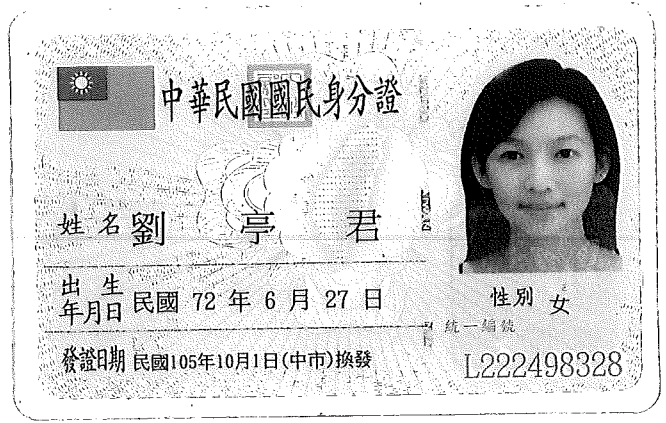 中華民國國民身分證
姓名 劉 亭 君
出生年月日 民國 72 年 6 月 27 日
性別 女
統一編號
發證日期 民國105年10月1日(中市)換發
L222498328